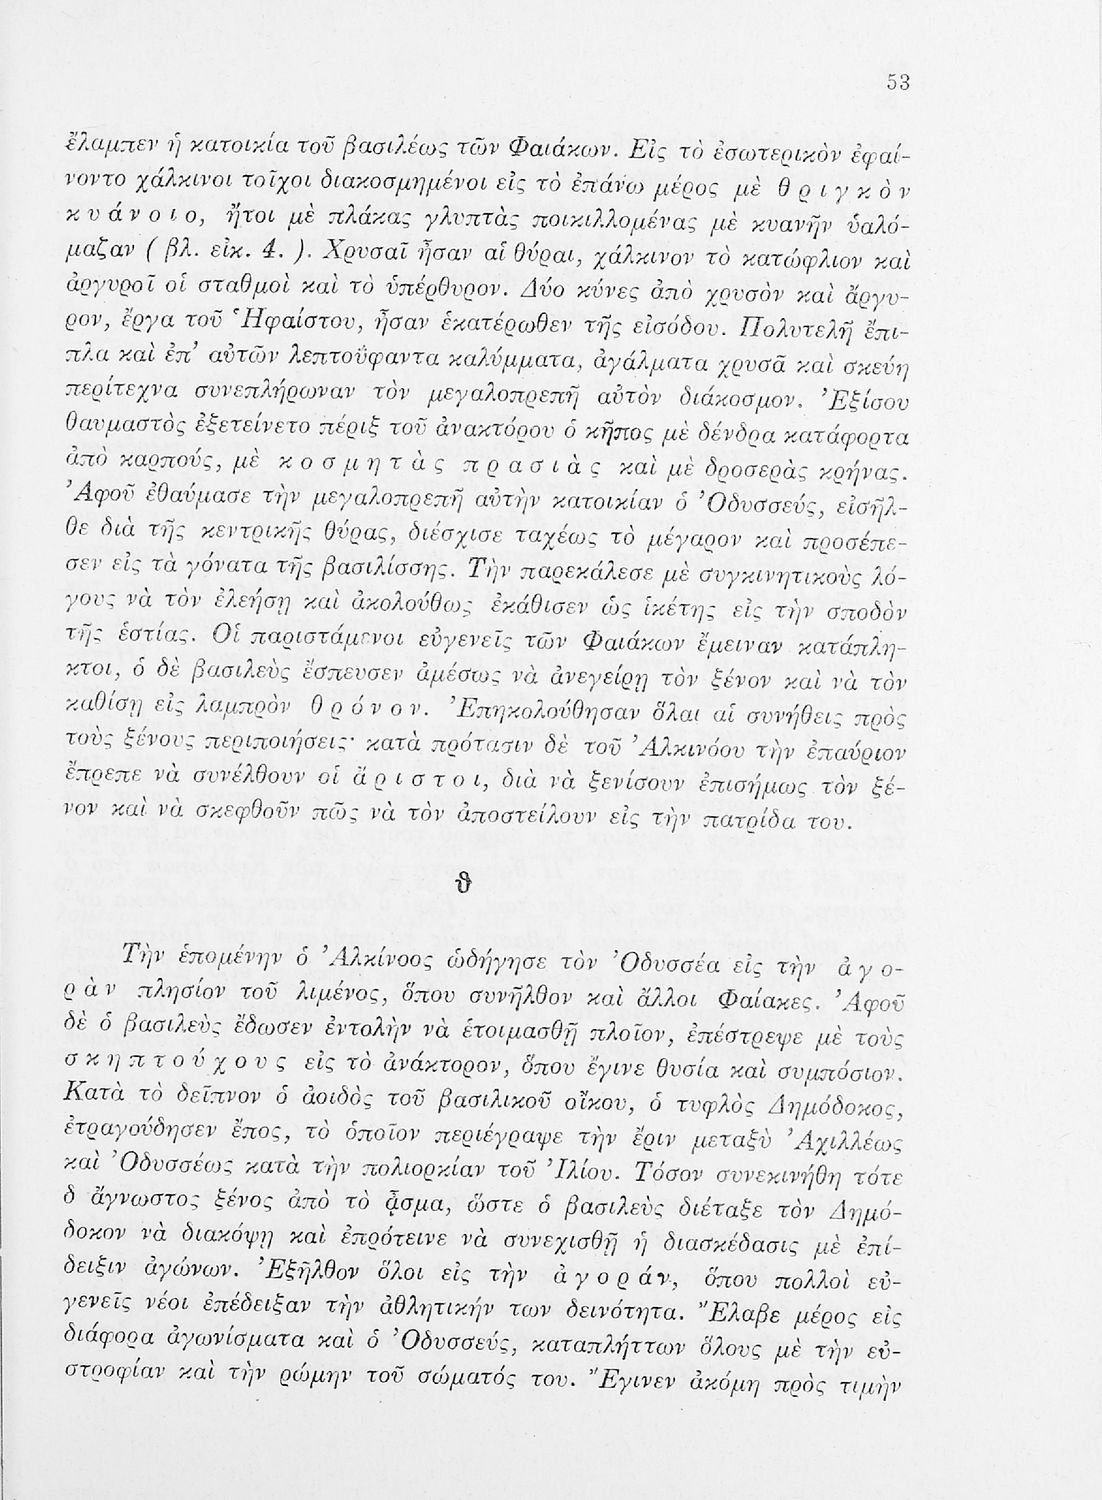 53
ἔλαμπεν ἡ κατοικία τοῦ βασιλέως τῶν Φαιάκων. Εἰς τὸ ἐσωτερικὸν ἐφαί-
νοντο χάλκινοι τοῖχοι διακοσμημένοι εἰς τὸ ἐπάνω μέρος μὲ θ ρ ι γ κ ὸ ν
κ υ ά ν ο ι ο, ἤτοι μὲ πλάκας γλυπτὰς ποικιλλομένας μὲ κυανῆν ὑαλό-
μαζαν ( βλ. εἰκ. 4. ). Χρυσαῖ ἦσαν αἱ θύραι, χάλκινον τὸ κατώφλιον καὶ
ἀργυροῖ οἱ σταθμοὶ καὶ τὸ ὑπέρθυρον. Δύο κύνες ἀπὸ χρυσὸν καὶ ἄργυ-
ρον, ἔργα τοῦ Ἡφαίστου, ἦσαν ἑκατέρωθεν τῆς εἰσόδου. Πολυτελῆ ἔπι-
πλα καὶ ἐπ’ αὐτῶν λεπτοΰφαντα καλύμματα, ἀγάλματα χρυσᾶ καὶ σκεύη
περίτεχνα συνεπλήρωναν τὸν μεγαλοπρεπῆ αὐτὸν διάκοσμον. Ἐξίσου
θαυμαστὸς ἐξετείνετο πέριξ τοῦ ἀνακτόρου ὁ κῆπος μὲ δένδρα κατάφορτα
ἀπὸ καρπούς, μὲ κ ο σ μ η τ ὰ ς π ρ α σ ι ὰ ς καὶ μὲ δροσερὰς κρήνας.
Ἀφοῦ ἐθαύμασε τὴν μεγαλοπρεπῆ αὐτὴν κατοικίαν ὁ Ὀδυσσεύς, εἰσῆλ-
θε διὰ τῆς κεντρικῆς θύρας, διέσχισε ταχέως τὸ μέγαρον καὶ προσέπε-
σεν εἰς τὰ γόνατα τῆς βασιλίσσης. Τὴν παρεκάλεσε μὲ συγκινητικοὺς λό-
γους νὰ τὸν ἐλεήσῃ καὶ ἀκολούθως ἐκάθισεν ὡς ἱκέτης εἰς τὴν σποδὸν
τῆς ἑστίας. Οἱ παριστάμενοι εὐγενεῖς τῶν Φαιάκων ἔμειναν κατάπλη-
κτοι, ὁ δὲ βασιλεὺς ἔσπευσεν ἀμέσως νὰ ἀνεγείρῃ τὸν ξένον καὶ νὰ τὸν
καθίσῃ εἰς λαμπρὸν θ ρ ό ν ο ν. Ἐπηκολούθησαν ὅλαι αἱ συνήθεις πρὸς
τοὺς ξένους περιποιήσεις· κατὰ πρότασιν δὲ τοῦ Ἀλκινόου τὴν ἐπαύριον
ἔπρεπε νὰ συνέλθουν οἱ ἄ ρ ι σ τ ο ι, διὰ νὰ ξενίσουν ἐπισήμως τὸν ξέ-
νον καὶ νὰ σκεφθοῦν πῶς νὰ τὸν ἀποστείλουν εἰς τὴν πατρίδα του.
ϑ
Τὴν ἑπομένην ὁ Ἀλκίνοος ὡδήγησε τὸν Ὀδυσσέα εἰς τὴν ἀ γ ο-
ρ ὰ ν πλησίον τοῦ λιμένος, ὅπου συνῆλθον καὶ ἄλλοι Φαίακες. Ἀφοῦ
δὲ ὁ βασιλεὺς ἔδωσεν ἐντολὴν νὰ ἑτοιμασθῇ πλοῖον, ἐπέστρεψε μὲ τοὺς
σ κ η π τ ο ύ χ ο υ ς εἰς τὸ ἀνάκτορον, ὅπου ἔγινε θυσία καὶ συμπόσιον.
Κατὰ τὸ δεῖπνον ὁ ἀοιδὸς τοῦ βασιλικοῦ οἴκου, ὁ τυφλὸς Δημόδοκος,
ἐτραγούδησεν ἔπος, τὸ ὁποῖον περιέγραψε τὴν ἔριν μεταξὺ Ἀχιλλέως
καὶ Ὀδυσσέως κατὰ τὴν πολιορκίαν τοῦ Ἰλίου. Τόσον συνεκινήθη τότε
ὁ ἄγνωστος ξένος ἀπὸ τὸ ᾆσμα, ὥστε ὁ βασιλεὺς διέταξε τὸν Δημό-
δοκον νὰ διακόψῃ καὶ ἐπρότεινε νὰ συνεχισθῇ ἡ διασκέδασις μὲ ἐπί-
δειξιν ἀγώνων. Ἐξῆλθον ὅλοι εἰς τὴν ἀ γ ο ρ ά ν, ὅπου πολλοὶ εὐ-
γενεῖς νέοι ἐπέδειξαν τὴν ἀθλητικήν των δεινότητα. Ἔλαβε μέρος εἰς
διάφορα ἀγωνίσματα καὶ ὁ Ὀδυσσεύς, καταπλήττων ὅλους μὲ τὴν εὐ-
στροφίαν καὶ τὴν ρώμην τοῦ σώματός του. Ἔγινεν ἀκόμη πρὸς τιμὴν